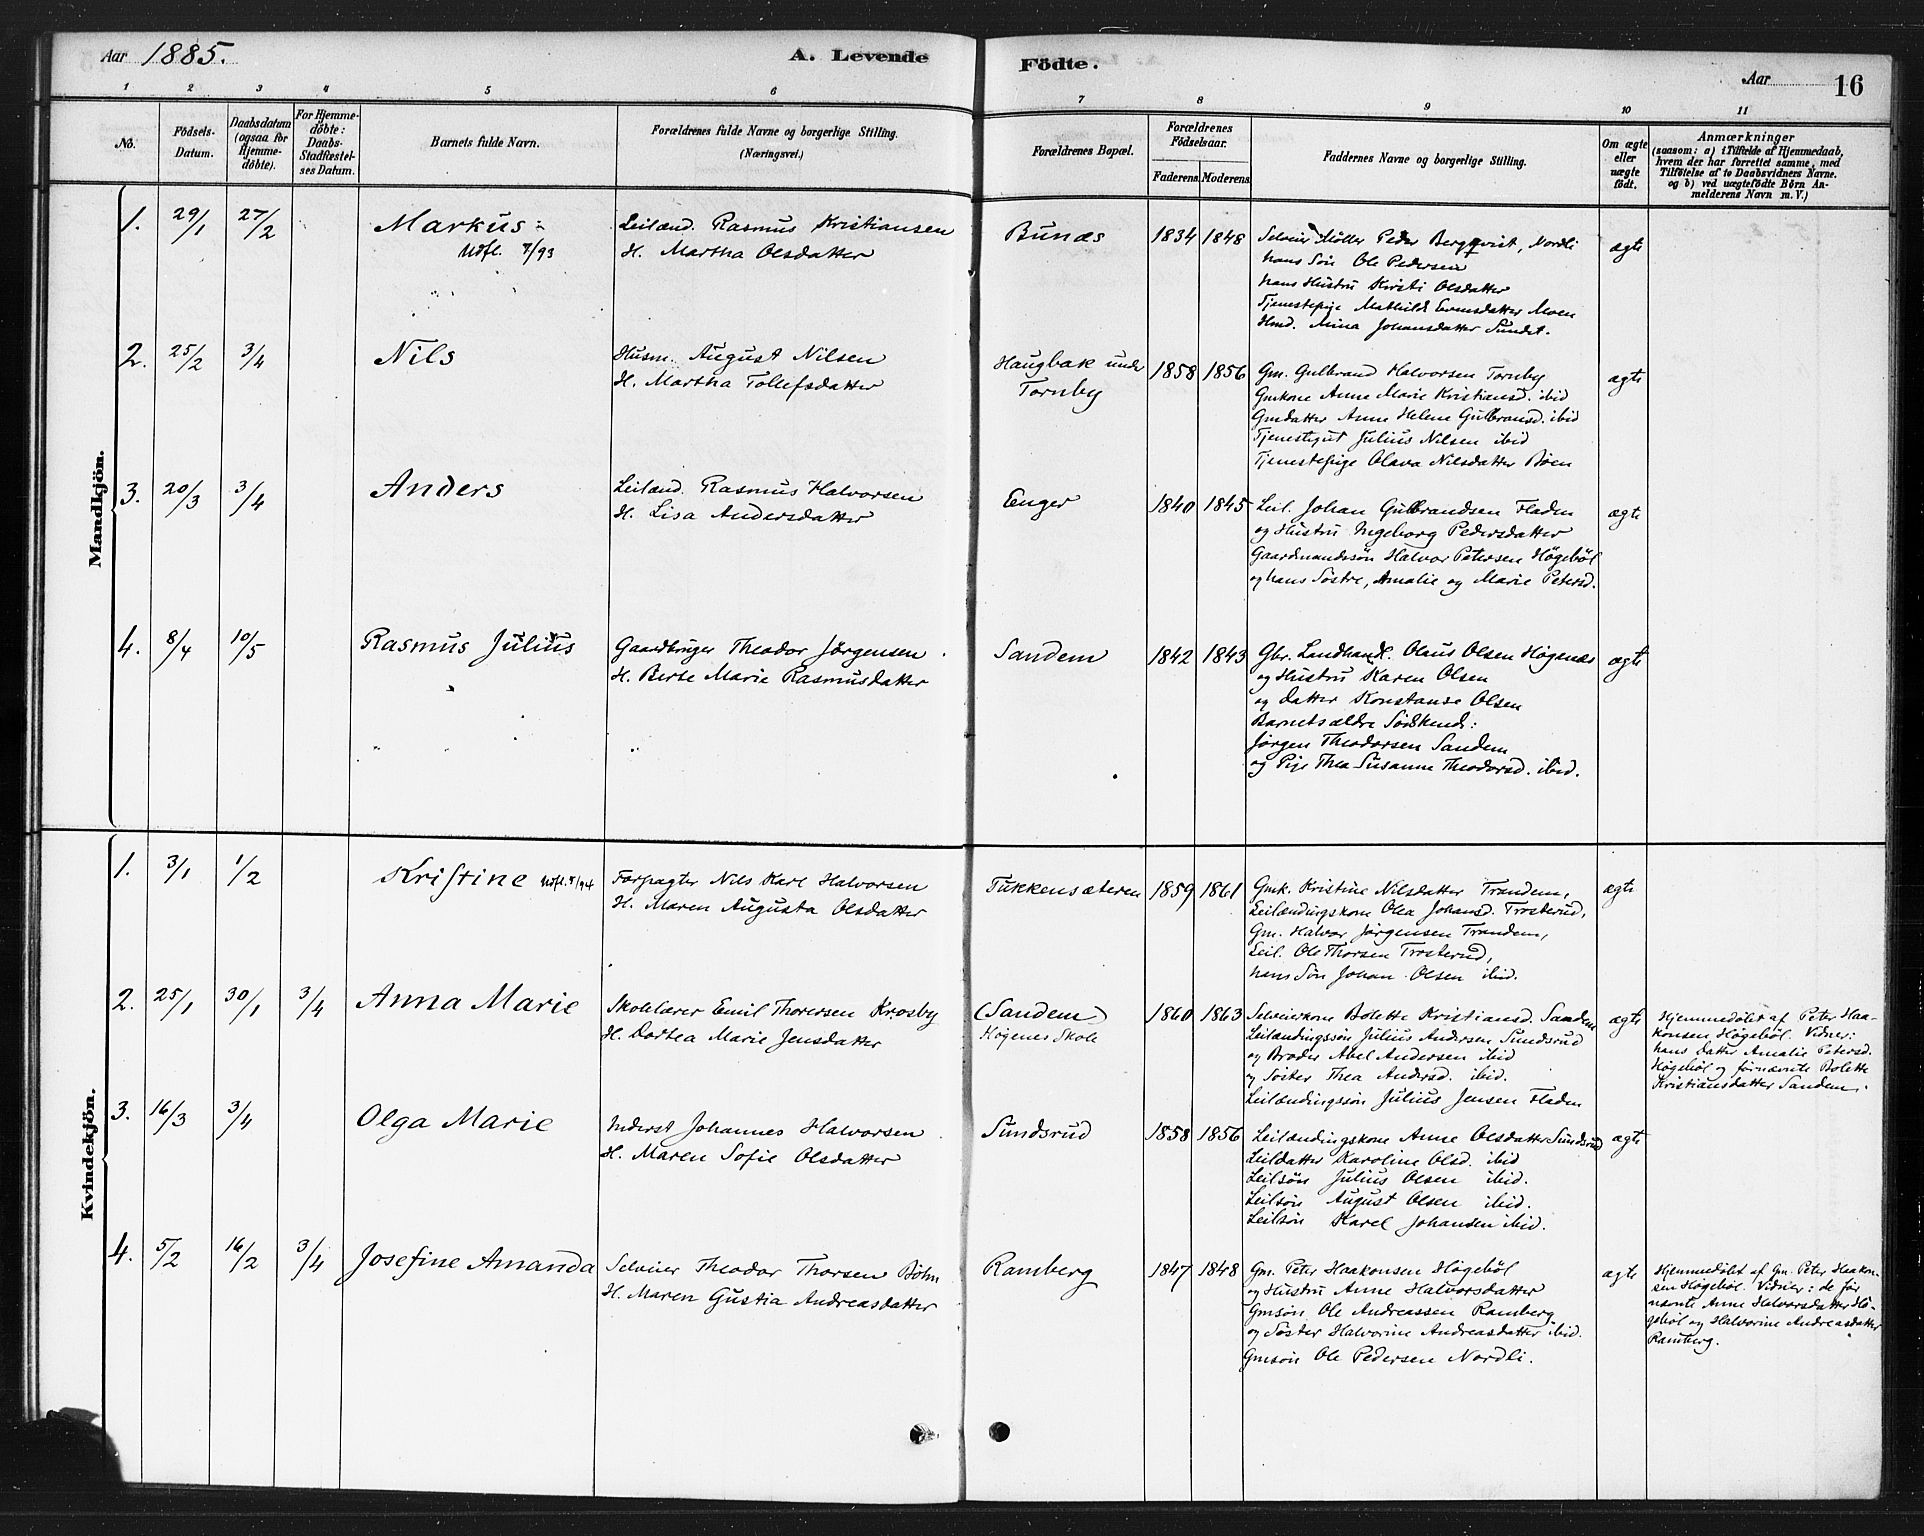 Aar 1885. A. Levende Födte. Aar 16
1 2 3 4 5 6 7 8 9 10 11
No.
Födsels-Datum.
Daabsdatum (ogsaa for Hjemmedöbte).
For Hjemmedöbte: Daabs-Stadfæstelses Datum.
Barnets fulde Navn.
Forældrenes fulde Navne og borgerlige Stilling. (Næringsvei.)
Forældrenes Bopæl.
Forældrenes Födselsaar.
Faderens. Moderens.
Faddernes Navne og borgerlige Stilling.
Om ægte eller uægte födt.
Anmærkninger
(saasom: a) i Tilfælde af Hjemmedaab,
hvem der har forrettet samme, med
Tilföielse af to Daabsvidners Navne.
og b) ved uægtefödte Börn Anmelderens Navn m. V.)
Mandkjön.
1. 29/1 27/2 Markus
Udfl. 7/93
Leilænd. Rasmus Kristiansen
H. Martha Olsdatter
Bunæs 1834 1848
Selveier Møller Peder Bergqvist, Nordli
hans Søn Ole Pedersen
hans Hustru Kirsti Olsdatter
Tjenestepige Mathilde Evensdatter Moen
Hmd. Mina Johansdatter Sundet.
ægte
2. 25/2 3/4 Nils
Husm. August Nilsen
H. Martha Tollefsdatter
Haugbak under
Tørnby
1858 1856
Gm. Gulbrand Halvorsen Tørnby
Gmkone Anne Marie Kristiansd. ibid
Gmdatter Anne Helene Gulbransd. ibid
Tjenestegut Julius Nilsen ibid
Tjenestepige Olava Nilsdatter Bøen
ægte
3. 20/3 3/4 Anders
Leilænd. Rasmus Halvorsen
H. Lisa Andersdatter
Enger 1840 1845
Leil. Johan Gulbrandsen Fladen
og Hustru Ingeborg Pedersdatter
Gaardmandssøn Halvor Petersen Høgebøl
og hans Søstre, Amalie og Marie Petersd.
ægte
4. 8/4 10/5 Rasmus Julius
Gaardbruger Theodor Jørgensen
H. Berte Marie Rasmusdatter
Sandem 1842 1843
Gbr. Landhandl. Olaus Olsen Høgenæs
og Hustru Karen Olsen
og Datter Konstanse Olsen
Barnets ældre Sødskende:
Jørgen Theodorsen Sandem
og Pige Thea Susanne Theodorsd. ibid.
ægte
Kvindekjön.
1. 3/1 1/2 Kristine Udfl. 7/94
Forpagter Nils Karl Halvorsen
H. Maren Augusta Olsdatter
Tukkensæteren 1859 1861
Gmk. Kristine Nilsdatter Trandem,
Leilændingskone Olea Johansd. Trosterud,
Gm. Halvor Jørgensen Trandem,
Leil. Ole Thorsen Trosterud,
hans Søn Johan Olsen ibid.
ægte
2. 25/1 30/1 3/4 Anna Marie
Skolelærer Emil Thoresen Krosby
H. Dortea Marie Jensdatter
(Sandem)
Høgenes Skole
1860 1863
Selveierkone Bolette Kristiansd. Sandem
Leilændingssøn Julius Andersen Sundsrud
og Broder Abel Andersen ibid
og Søster Thea Andersd. ibid.
Leilændingssøn Julius Jensen Fladen
ægte
Hjemmedøbt af Peter Haa-
konsen Høgebøl. Vidner:
hans Datter Amalie Petersd.
Høgebøl og førnævnte Bolette
Kristiansdatter Sandem.
3. 16/3 3/4 Olga Marie
Inderst Johannes Halvorsen
H. Maren Sofie Olsdatter
Sundsrud 1858 1856
Leilændingskone Anne Olsdatter Sundsrud
Leildatter Karoline Olsd. ibid
Leilsøn Julius Olsen ibid.
Leilsøn August Olsen ibid.
Leilsøn Karel Johansen ibid.
ægte
4. 5/2 16/2 3/4 Josefine Amanda
Selveier Theodor Thorsen Böhn
H. Maren Gustia Andreasdatter
Ramberg 1847 1848
Gm. Peter Haakonsen Høgebøl
og Hustru Anne Halvorsdatter
Gmsøn Ole Andreassen Ramberg
og Søster Halvorine Andreasdatter ibid.
Gmsøn Ole Pedersen Nordli.
ægte
Hjemmedøbt af Gm. Peter Haakon-
sen Høgebøl. Vidner: de før
nævnte Anne Halvorsdatter Hø-
gebøl og Halvorine Andreasdatter
Ramberg.